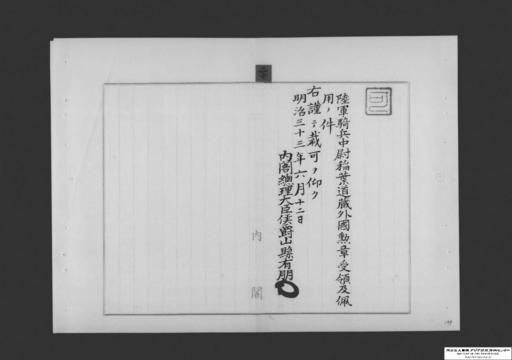 陸軍騎兵中尉稲葉道蔵外國勲章受領及佩
用ノ件
右謹テ裁可ヲ仰ク
明治三十三年六月十二日
内閣總理大臣侯爵山縣有朋
内閣